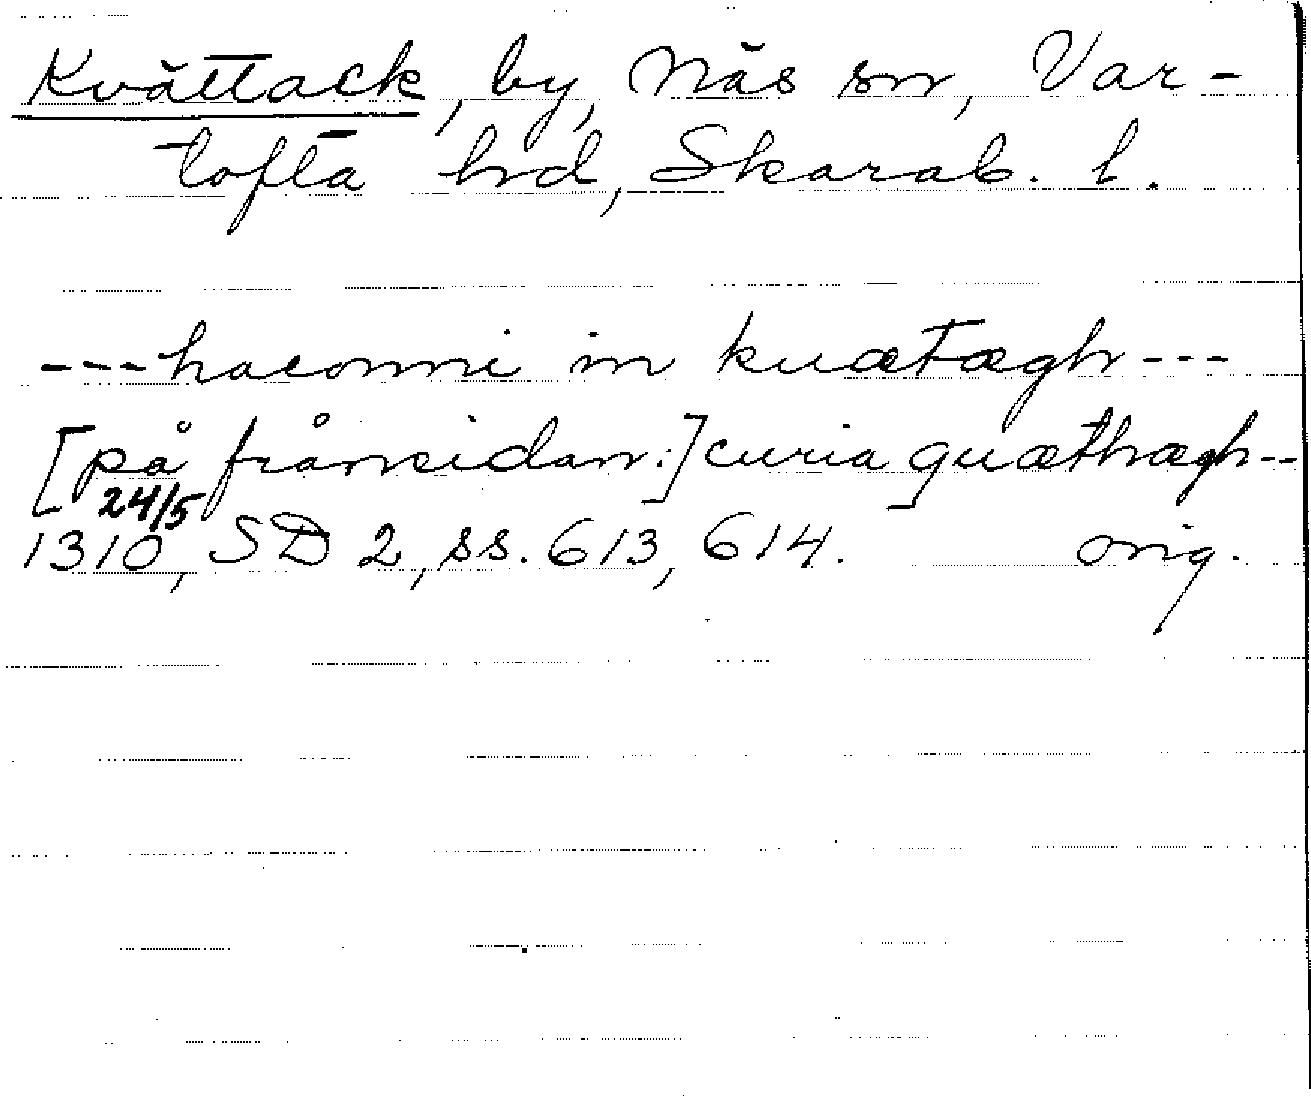 Kvättack, by, Näs sn, Var-
tofta hrd, Skarab. l.
---haconni in kuætægh---
[på frånsidan:] curia quæthægh--
24/5
1310, SD 2, ss. 613, 614. orig.